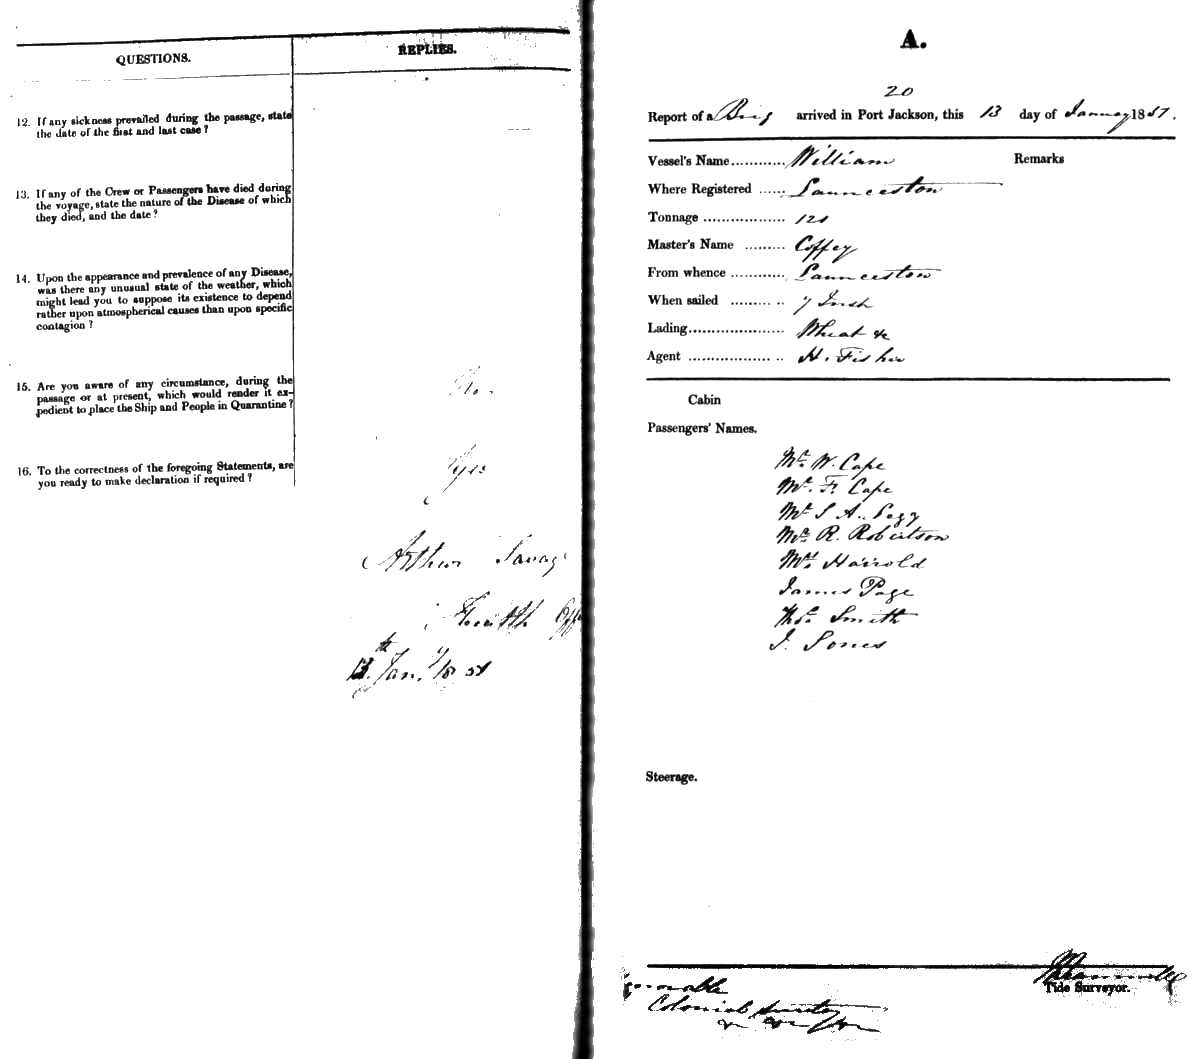 QUESTIONS.
REPLIES.
12. If any sickness prevailed during the passage, state
the date of the first and last case?
13. If any of the Crew or Passengers have died during
the voyage, state the nature of the Disease of which
they died, and the date?
14. Upon the appearance and prevalence of any Disease,
was there any unusual state of the weather, which
might lead you to suppose its existence to depend
rather upon atmospherical causes than upon specific
contagion?
15. Are you aware of any circumstance, during the
passage or at present, which would render it ex-
pedient to place the Ship and People in Quarantine?
No.
16. To the correctness of the foregoing Statements, are
you ready to make declaration if required?
Yes
Arthur Savage
Health Off
13th Jany 1851
A.
20
Report of a Brig arrived in Port Jackson, this 13 day of January 1851.
Vessel's Name............ William
Remarks
Where Registered ...... Launceston
Tonnage .................. 121
Master's Name ......... Coffey
From whence ............ Launceston
When sailed ............ 7 Inst
Lading...................... Wheat &c
Agent ..................... H. Fisher
Cabin
Passengers' Names.
Mr. W. Cape
Mr. F. Cape
Mr S A. Pegg
Mr. R. Robertson
Mrs Harrold
James Page
Thos. Smith
J. Jones
Steerage.
Tide Surveyor.
Honorable
Colonial Secretary